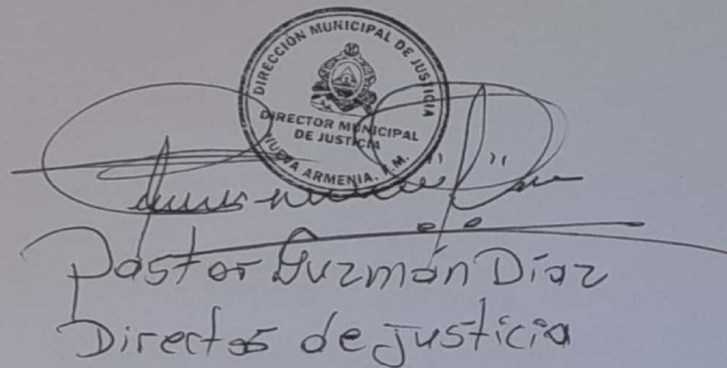 DIRECCIÓN MUNICIPAL DE JUSTICIA
DIRECTOR MUNICIPAL
DE JUSTICIA
NUEVA ARMENIA, F.M.
Pastor Guzmán Díaz
Director de justicia